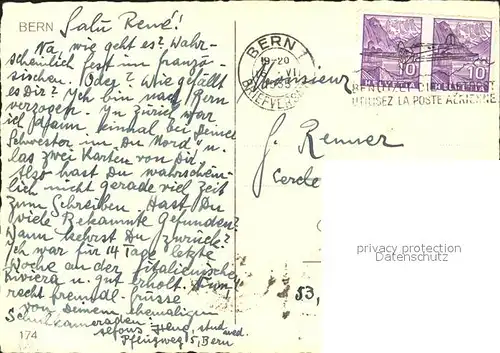 BERN
Salü René!
Na, wie geht es? Wahr-
scheinlich fest im franzö-
sischen. Oder? Wie gefällt
es Dir? Ich bin nach Bern
verzogen. In Zürich war
ich dann einmal bei Deiner
Schwester im Du Nord u.
las zwei Karten von Dir.
Also hast Du wahrschein-
lich nicht gerade viel Zeit
zum Schreiben. Hast Du
viele Bekannte gefunden?
Wann kehrst Du zurück?
Ich war für 14 Tage letzte
Woche an der italienischen
Riviera u. gut erholt. Nun
recht freundl. Grüsse
von Deinem ehemaligen
Schulkameraden:
Alfons Heng, stud. med.
Pflugweg 5, Bern
174
BERN 1
19-20
VI
BRIEFVERSAND
10 HELVETIA
10 HELVETIA
UTILISEZ LA POSTE AÉRIENNE
Monsieur
J. Renner
Cercle
privacy protection
Datenschutz
53,